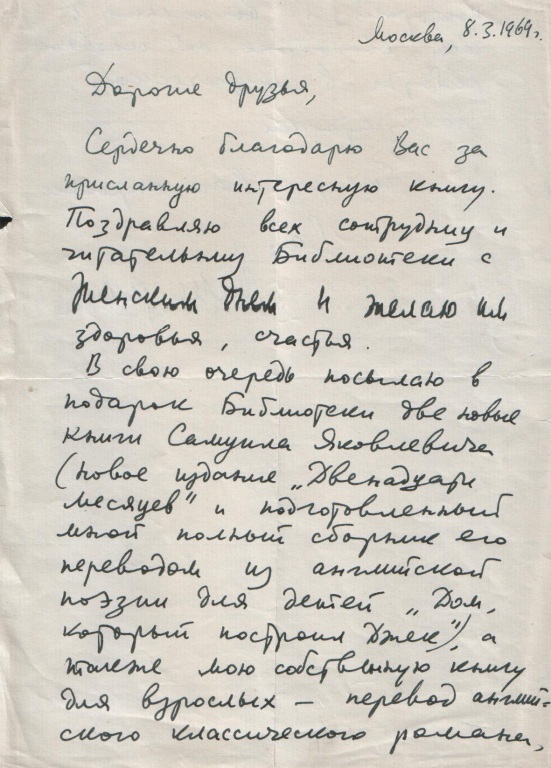 Москва, 8.3.1969г.
Дорогие друзья,
Сердечно благодарю Вас за
присланную интересную книгу.
Поздравляю всех сотрудниц и
читательниц Библиотеки с
Женским днем и желаю им
здоровья, счастья.
В свою очередь посылаю в
подарок Библиотеки две новые
книги Самуила Яковлевича
(новое издание „Двенадцати
месяцев" и подготовленный
мной полный сборник его
переводом из английской
поэзии для детей „Дом,
который построил Джек"), а
также мою собственную книгу
для взрослых – перевод англий-
ского классического романа,